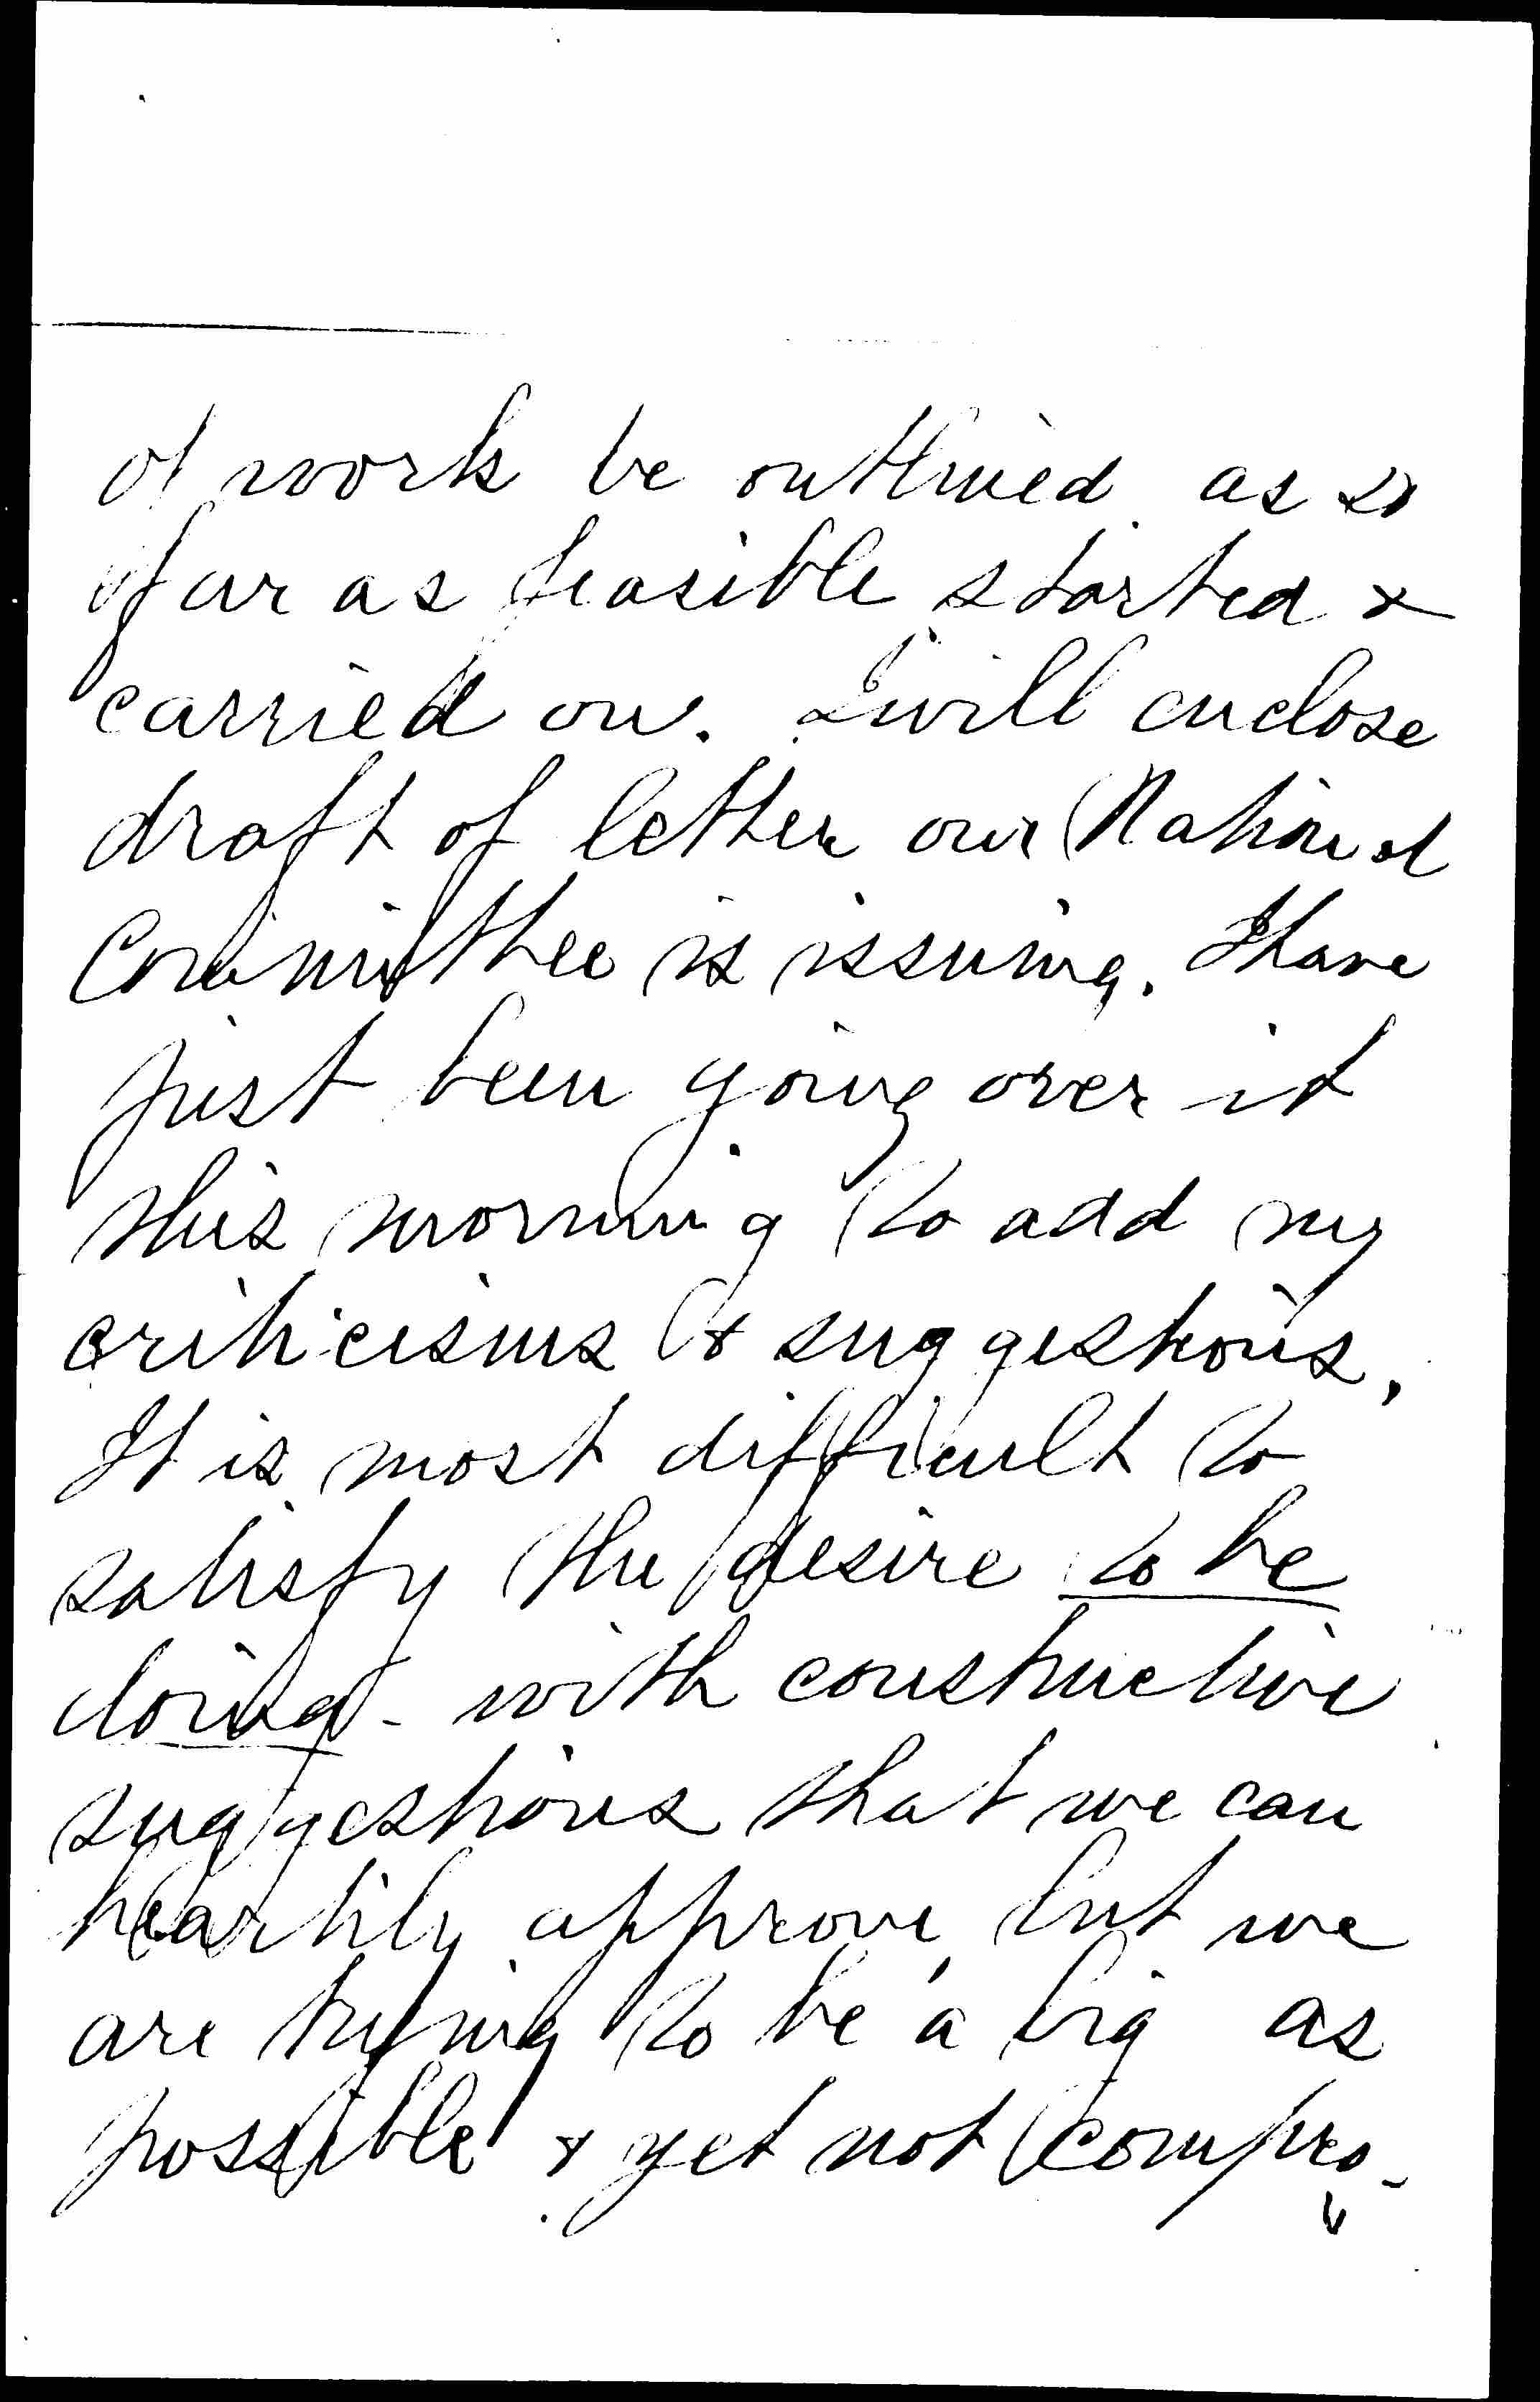 of work be outlined as so
far as feasible started &
carried on. I will enclose
draft of letter our National
Committee is issuing. I have
just been going over it
this morning to add my
criticisms & suggestions.
It is most difficult to
satisfy the desire to be
doing - with constructive
suggestions that we can
heartily approve, but we
are trying to be a big as
possible & yet not compro-